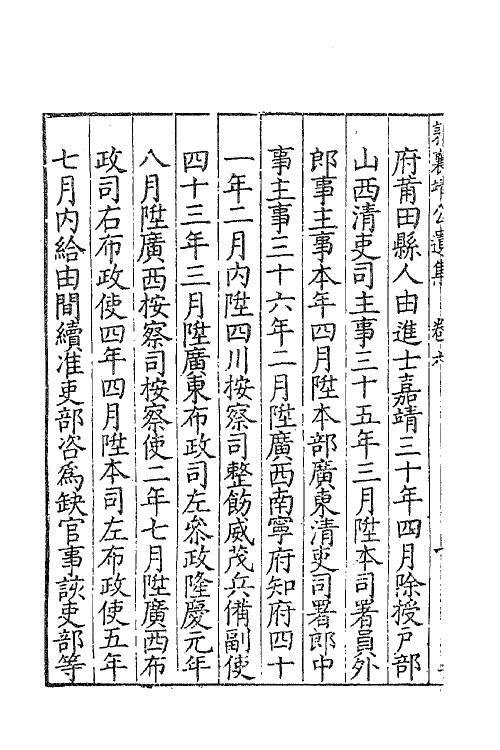 郭襄靖公遺集 卷六
府莆田縣人由進士嘉靖三十年四月除授戶部
山西清吏司主事三十五年三月陞本司署員外
郎事主事本年四月陞本部廣東清吏司署郎中
事主事三十六年二月陞廣西南寧府知府四十
一年二月內陞四川按察司整飭威茂兵備副使
四十三年三月陞廣東布政司左叅政隆慶元年
八月陞廣西按察司按察使二年七月陞廣西布
政司右布政使四年四月陞本司左布政使五年
七月內給由間續准吏部咨爲缺官事該吏部等